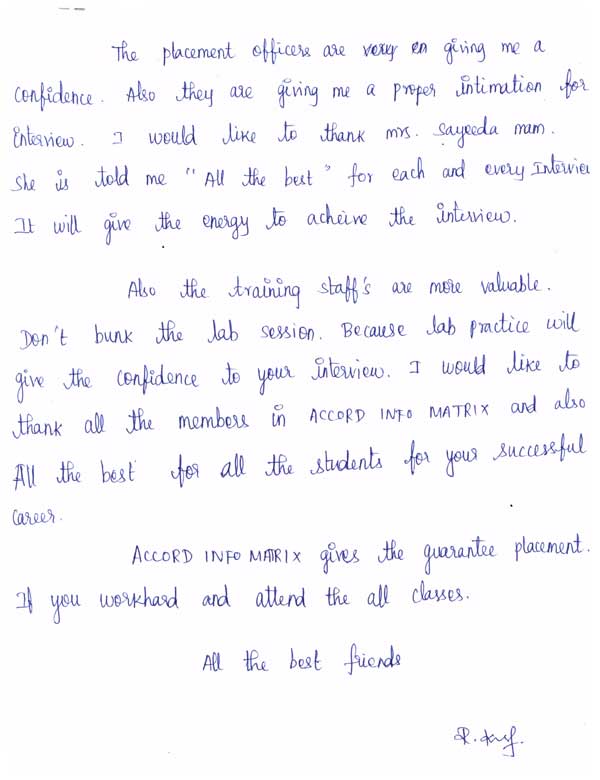 The placement officers are very en giving me a
confidence. Also they are giving me a proper intimation for
interview. I would like to thank mrs. Sayeeda mam.
She is told me "All the best" for each and every Interview
It will give the energy to acheive the interview.
Also the training staff's are more valuable.
Don't bunk the lab session. Because lab practice will
give the confidence to your interview. I would like to
thank all the members in ACCORD INFO MATRIX and also
All the best for all the students for your successful
career.
ACCORD INFO MATRIX gives the guarantee placement.
If you workhard and attend the all classes.
All the best friends